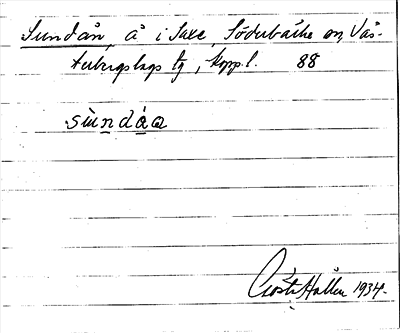 Sundån, å i Saxe, Söderbärke sn, Väs-
terbergslags tg, Koppl. 88
sùndáa
Gösta Hallén 1934.